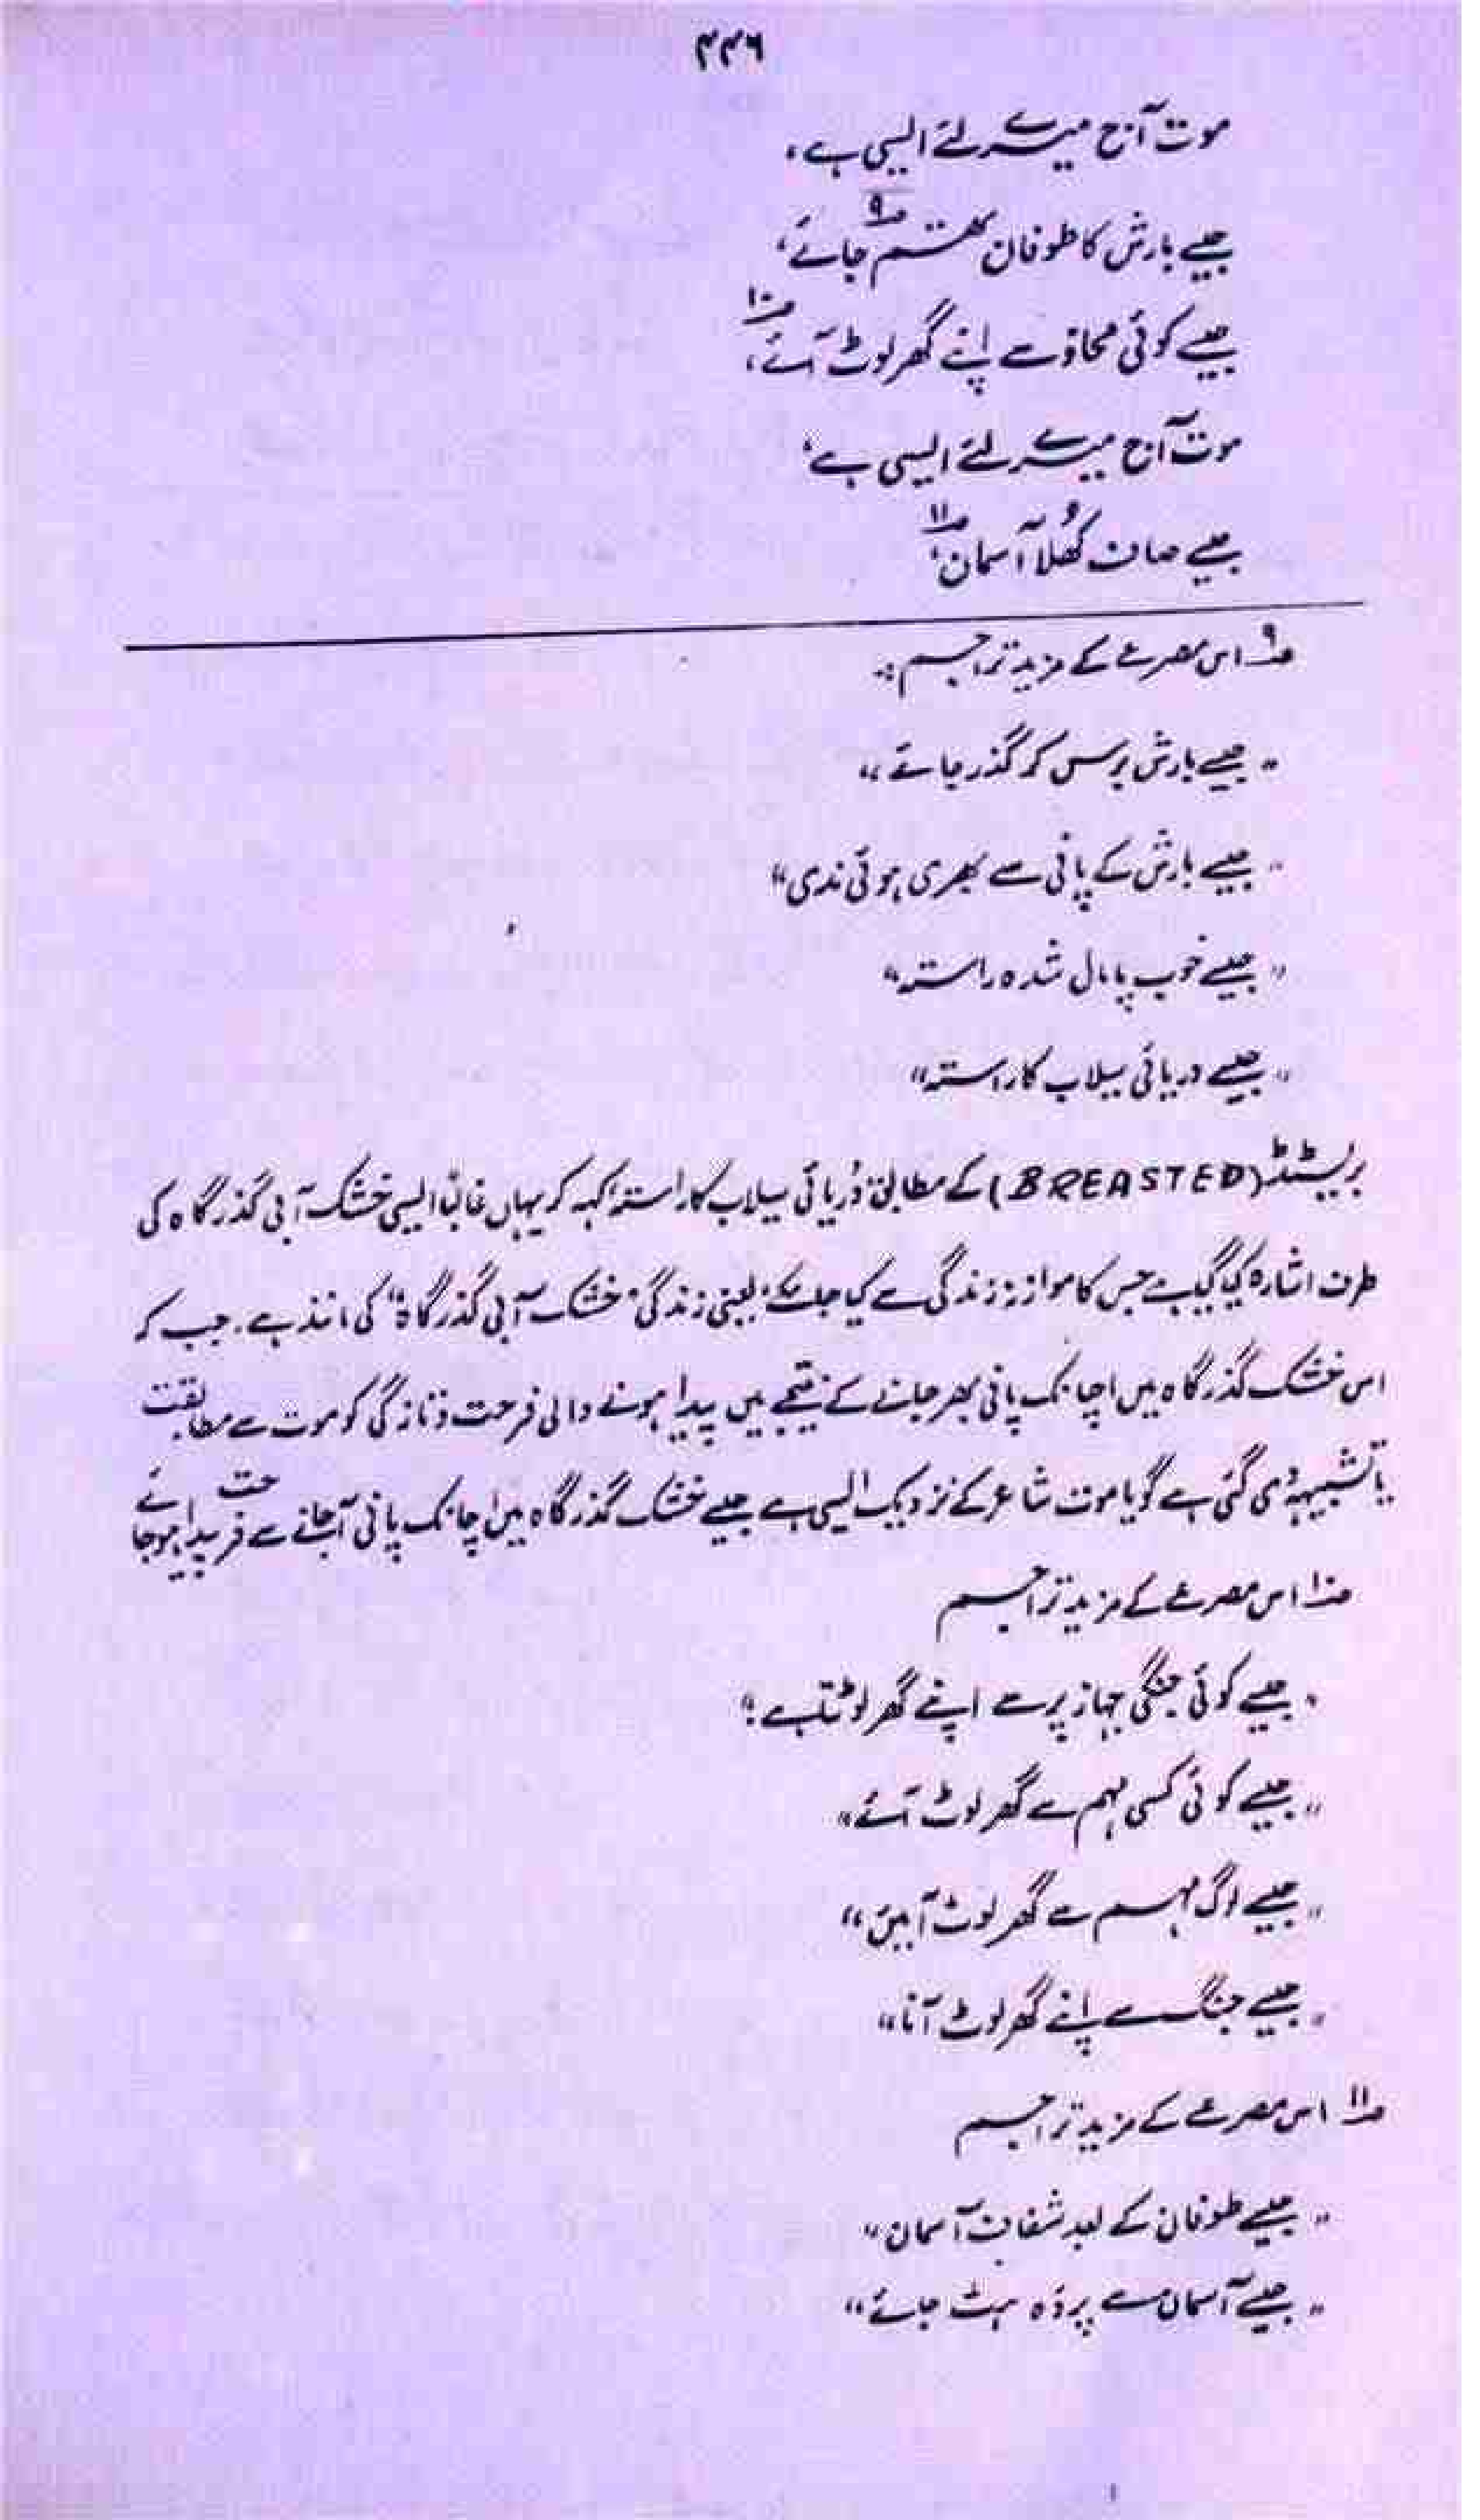 ۴۴۶
موت آج میرے لئے ایسی ہے،
جیسے بارش کا طوفان تھم جائے، ؎۹
جیسے کوئی محاذ سے اپنے گھر لوٹ آئے، ؎۱۰
موت آج میرے لئے ایسی ہے،
جیسے صاف کُھلا آسمان، ؎۱۱
؎۹ اس مصرعے کے مزید تراجم :۔
"جیسے بارش برس کر گذر جائے"
"جیسے بارش کے پانی سے بھری ہوئی ندی"
"جیسے خوب پامال شدہ راستہ"
"جیسے دریائی سیلاب کا راستہ"
بریسٹڈ (BREASTED) کے مطابق دریائی سیلاب کا راستہ کہہ کر یہاں غالباً ایسی خشک آبی گذرگاہ کی
طرف اشارہ کیا گیا ہے جس کا موازنہ زندگی سے کیا جا سکے، یعنی زندگی "خشک آبی گذرگاہ" کی مانند ہے۔ جب کہ
اس خشک گذرگاہ میں اچانک پانی بھر جانے کے نتیجے میں پیدا ہونے والی فرحت و تازگی کو موت سے مطابقت
یا تشبیہہ دی گئی ہے گویا موت شاعر کے نزدیک ایسی ہے جیسے خشک گذرگاہ میں اچانک پانی آ جانے سے فرحت پیدا ہو جائے
؎۱۰ اس مصرعے کے مزید تراجم
"جیسے کوئی جنگی جہاز پر سے اپنے گھر لوٹتا ہے"
"جیسے کوئی کسی مہم سے گھر لوٹ آئے"
"جیسے لوگ مہم سے گھر لوٹ آئیں"
"جیسے جنگ سے اپنے گھر لوٹ آنا"
؎۱۱ اس مصرعے کے مزید تراجم
"جیسے طوفان کے بعد شفاف آسمان"
"جیسے آسمان سے پردہ ہٹ جائے"